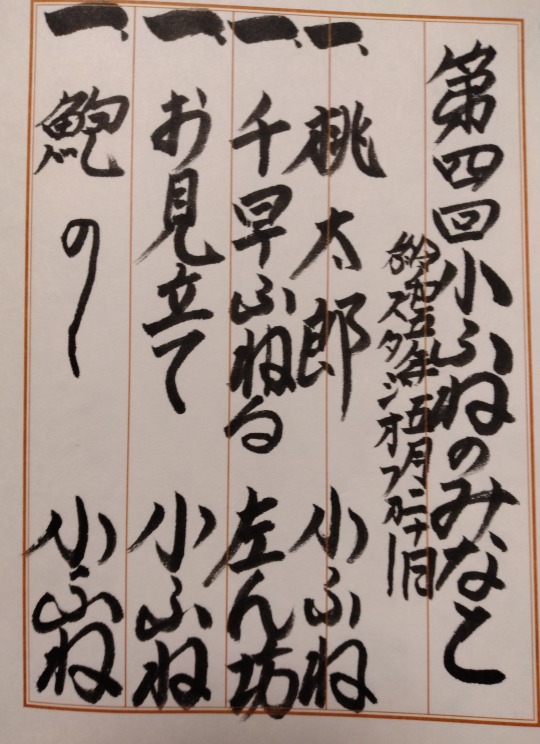 第四回小ふねのみなと
令和五年五月二十日
於スタジオフォー
一、桃太郎 小ふね
一、千早ふねる 左ん坊
一、お見立て 小ふね
一、鮑のし 小ふね